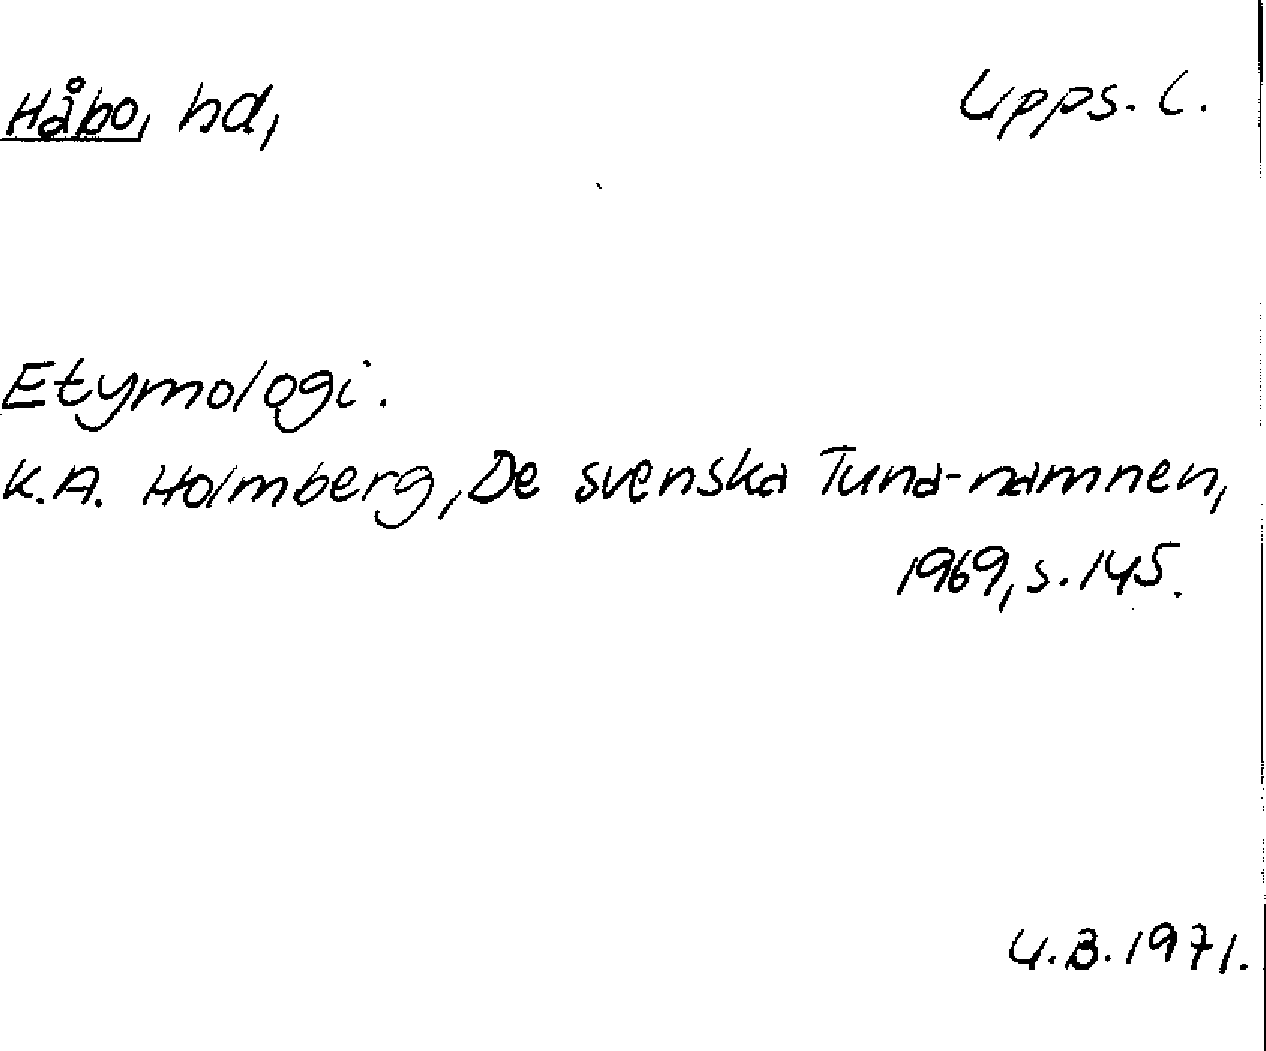 Håbo, hd, Upps. l.
Etymologi.
K.A. Holmberg, De svenska Tuna-namnen,
1969, s. 145.
U.B. 1971.